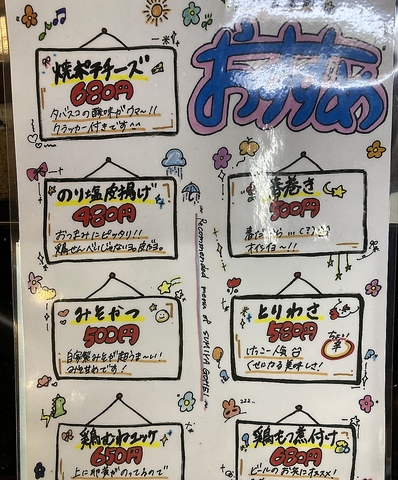 おすすめ
焼ポテチーズ
680円
タバスコの酸味がウマ〜!!
クラッカー付きです^^
のり塩皮揚げ
480円
おつまみにピッタリ!!
鶏せんべいじゃないヨ。皮だヨ。
春巻き
オイシイヨ〜!!
みそかつ
500円
自家製みそが超うま〜い!
みそ甘めです!
とりわさ
580円
けっこー人気
くせになる美味しさ!
鶏むねユッケ
650円
上に卵黄がのってるので
鶏もつ煮付け
680円
ビールのお供にオススメ!
~ Recommended menu of